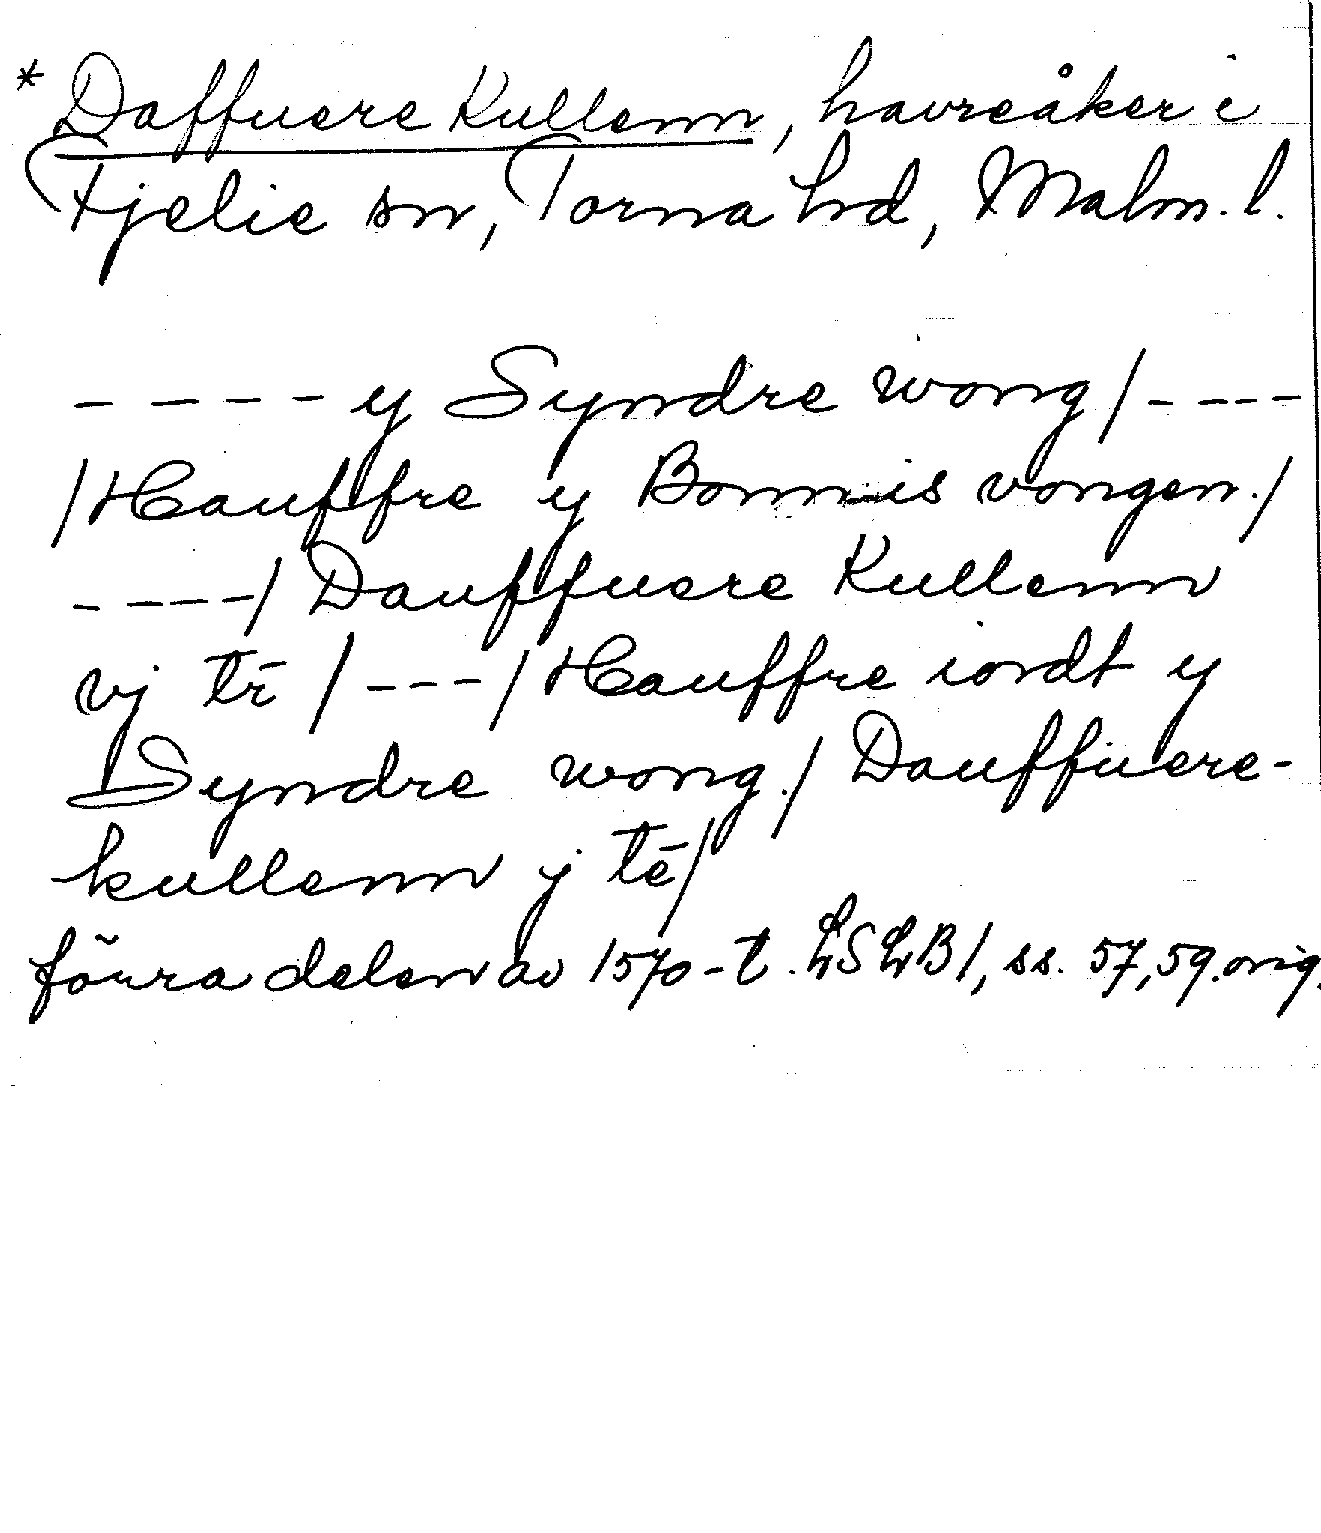 * Daffuere Kullenn, havreåker i
Fjelie sn, Torna hd, Malm. l.
- - - - y Syndre wong / - - - -
/ Hauffre y Bonnis vongen. /
- - - - / Dauffuere Kullenn
vj tr̄ / - - - / Hauffre iordt y
Syndre wong. / Dauffuere-
kullenn j tē /
förra delen av 1570-t. LSLB 1, ss. 57, 59. orig.